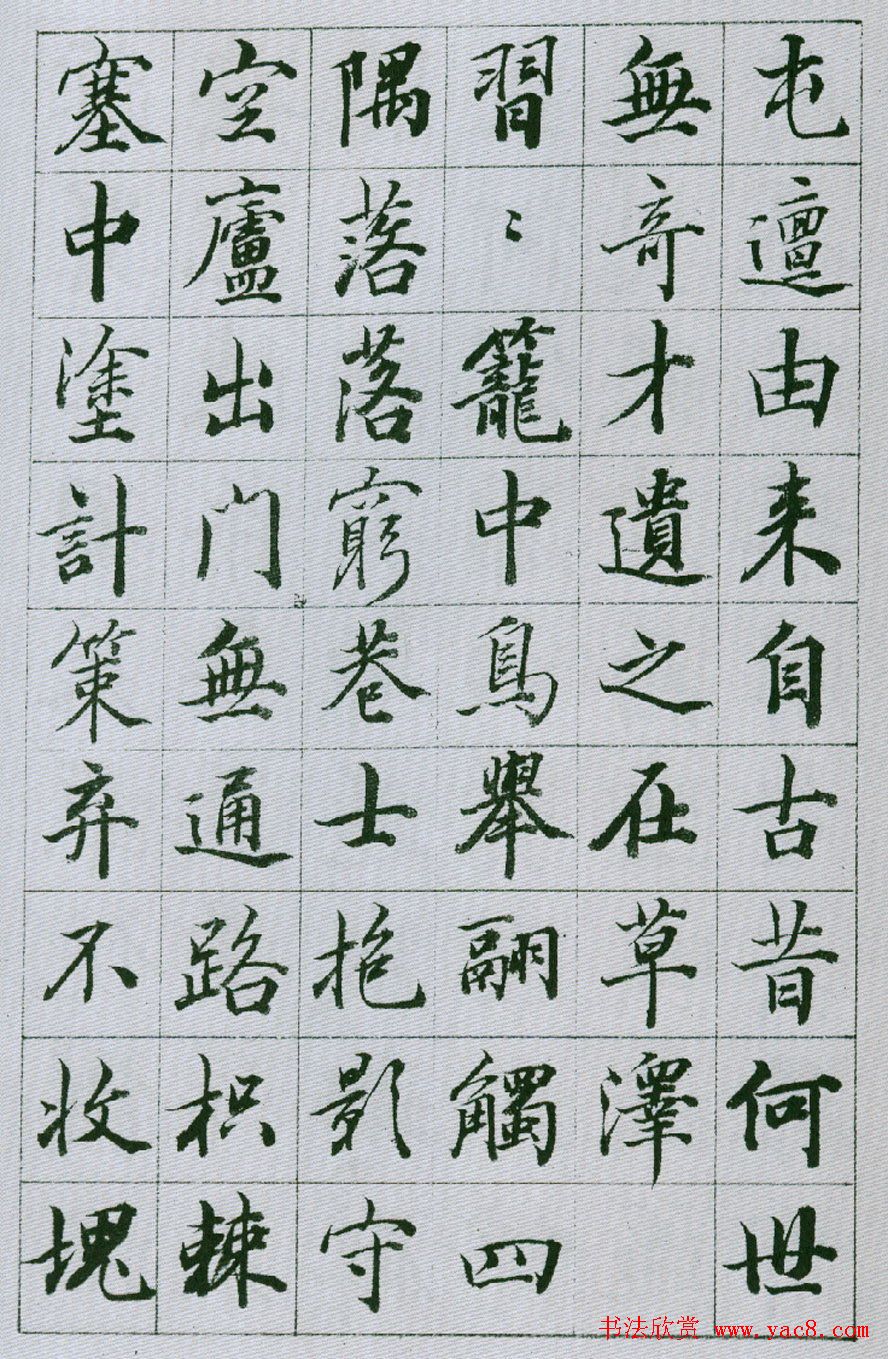 屯邅由来自古昔何世
無竒才遺之在草澤
習〻籠中鳥舉翮觸四
隅落落窮巷士抱影守
空廬出门無通路枳棘
塞中塗計策弃不收塊
书法欣赏 www.yac8.com